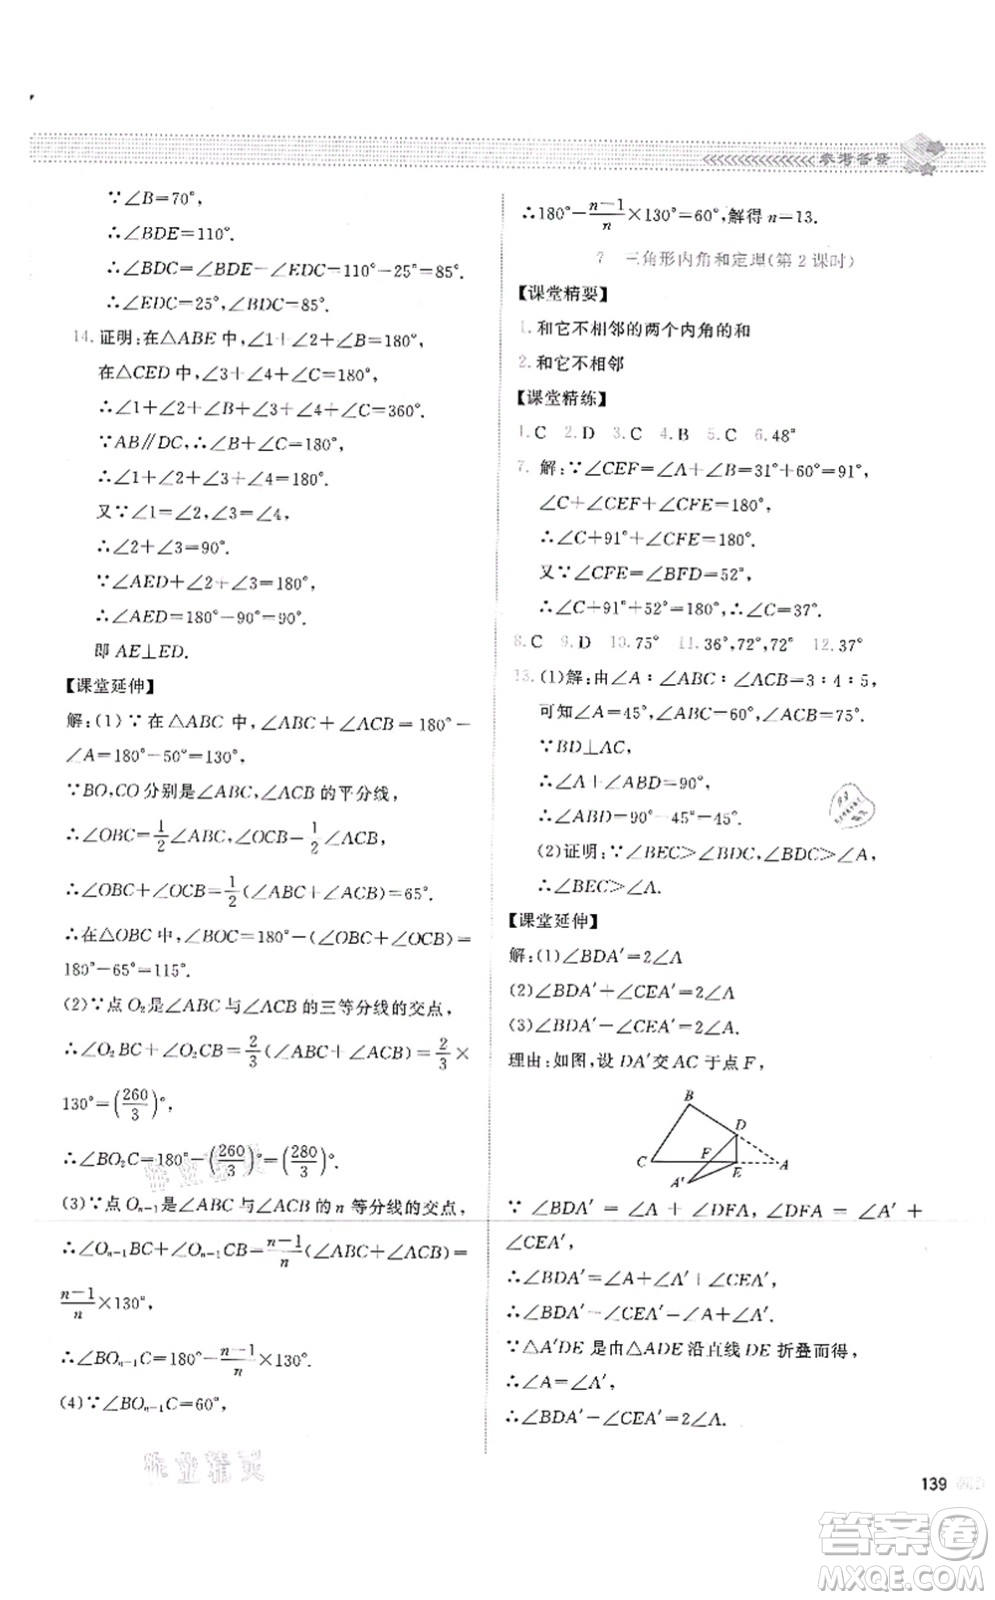 参考答案
∵∠B=70°,
∴∠BDE=110°.
∴∠BDC=∠BDE-∠EDC=110°-25°=85°.
∴∠EDC=25°,∠BDC=85°.
14. 证明:在△ABE中,∠1+∠2+∠B=180°,
在△CED中,∠3+∠4+∠C=180°,
∴∠1+∠2+∠B+∠3+∠4+∠C=360°.
∵AB∥DC,∴∠B+∠C=180°,
∴∠1+∠2+∠3+∠4=180°.
又∵∠1=∠2,∠3=∠4,
∴∠2+∠3=90°.
∵∠AED+∠2+∠3=180°,
∴∠AED=180°-90°=90°.
即AE⊥ED.
【课堂延伸】
解:(1)∵在△ABC中,∠ABC+∠ACB=180°-
∠A=180°-50°=130°,
∵BO,CO分别是∠ABC,∠ACB的平分线,
∴∠OBC=1/2∠ABC,∠OCB=1/2∠ACB,
∴∠OBC+∠OCB=1/2(∠ABC+∠ACB)=65°.
∴在△OBC中,∠BOC=180°-(∠OBC+∠OCB)=
180°-65°=115°.
(2)∵点O₂是∠ABC与∠ACB的三等分线的交点,
∴∠O₂BC+∠O₂CB=2/3(∠ABC+∠ACB)=2/3×
130°=(260/3)°,
∴∠BO₂C=180°-(260/3)°=(280/3)°.
(3)∵点Oₙ₋₁是∠ABC与∠ACB的n等分线的交点,
∴∠Oₙ₋₁BC+∠Oₙ₋₁CB=(n-1)/n(∠ABC+∠ACB)=
(n-1)/n×130°,
∴∠BOₙ₋₁C=180°-(n-1)/n×130°.
(4)∵∠BOₙ₋₁C=60°,
∴180°-(n-1)/n×130°=60°,解得n=13.
7 三角形内角和定理(第2课时)
【课堂精要】
1. 和它不相邻的两个内角的和
2. 和它不相邻
【课堂精练】
1. C 2. D 3. C 4. B 5. C 6. 48°
7. 解:∵∠CEF=∠A+∠B=31°+60°=91°,
∠C+∠CEF+∠CFE=180°,
∴∠C+91°+∠CFE=180°.
又∵∠CFE=∠BFD=52°,
∴∠C+91°+52°=180°,∴∠C=37°.
8. C 9. D 10. 75° 11. 36°,72°,72° 12. 37°
13. (1)解:由∠A∶∠ABC∶∠ACB=3∶4∶5,
可知∠A=45°,∠ABC=60°,∠ACB=75°.
∵BD⊥AC,
∴∠A+∠ABD=90°,
∴∠ABD=90°-45°=45°.
(2)证明:∵∠BEC>∠BDC,∠BDC>∠A,
∴∠BEC>∠A.
【课堂延伸】
解:(1)∠BDA′=2∠A
(2)∠BDA′+∠CEA′=2∠A
(3)∠BDA′-∠CEA′=2∠A.
理由:如图,设DA′交AC于点F,
B
D
F
C
E
A
A′
∵∠BDA′=∠A+∠DFA,∠DFA=∠A′+
∠CEA′,
∴∠BDA′=∠A+∠A′+∠CEA′,
∴∠BDA′-∠CEA′=∠A+∠A′.
∵△A′DE是由△ADE沿直线DE折叠而得,
∴∠A=∠A′,
∴∠BDA′-∠CEA′=2∠A.
作业精灵
作业精灵
139
答案卷
MXQE.COM